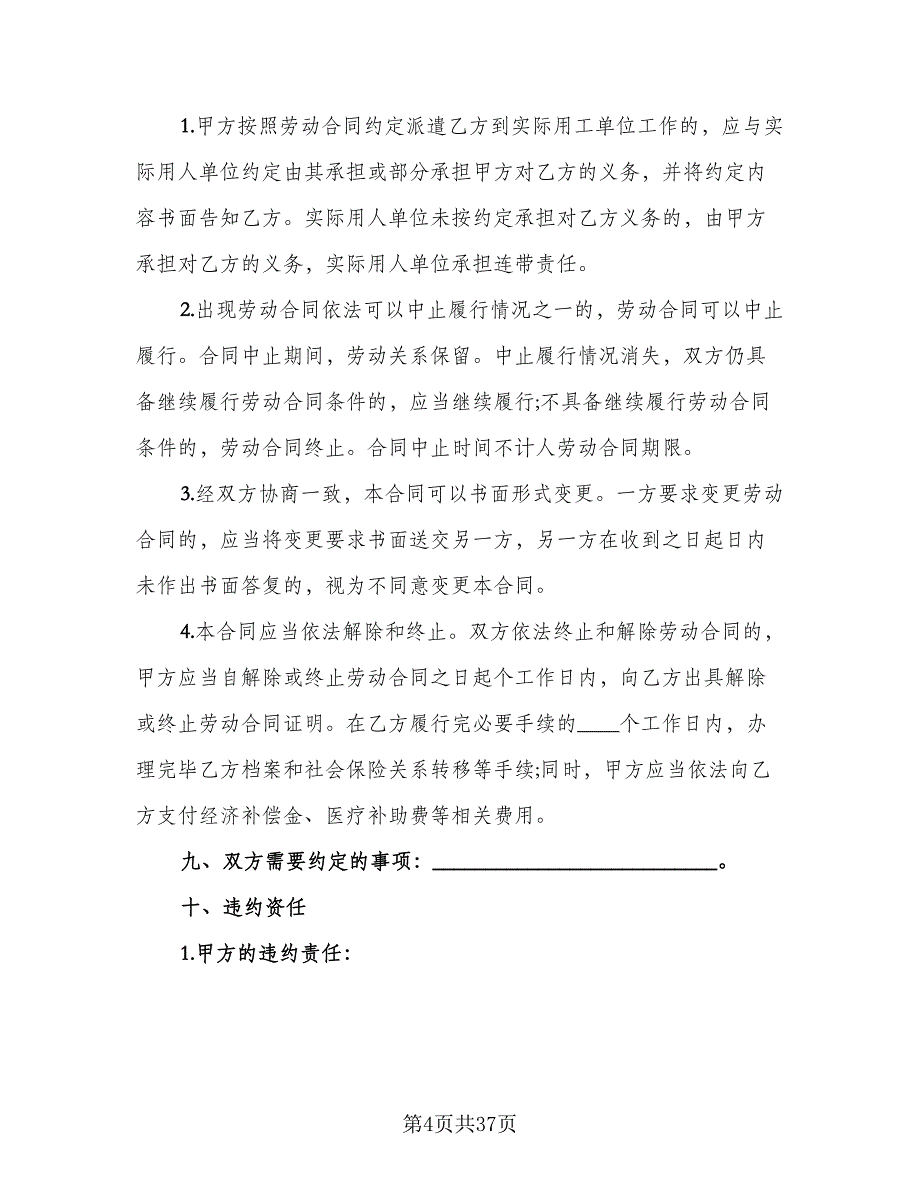 1.甲方按照劳动合同约定派遣乙方到实际用工单位工作的，应与实
际用人单位约定由其承担或部分承担甲方对乙方的义务，并将约定内
容书面告知乙方。实际用人单位未按约定承担对乙方义务的，由甲方
承担对乙方的义务，实际用人单位承担连带责任。
2.出现劳动合同依法可以中止履行情况之一的，劳动合同可以中止
履行。合同中止期间，劳动关系保留。中止履行情况消失，双方仍具
备继续履行劳动合同条件的，应当继续履行;不具备继续履行劳动合同
条件的，劳动合同终止。合同中止时间不计人劳动合同期限。
3.经双方协商一致，本合同可以书面形式变更。一方要求变更劳动
合同的，应当将变更要求书面送交另一方，另一方在收到之日起日内
未作出书面答复的，视为不同意变更本合同。
4.本合同应当依法解除和终止。双方依法终止和解除劳动合同的，
甲方应当自解除或终止劳动合同之日起个工作日内，向乙方出具解除
或终止劳动合同证明。在乙方履行完必要手续的____个工作日内，办
理完毕乙方档案和社会保险关系转移等手续;同时，甲方应当依法向乙
方支付经济补偿金、医疗补助费等相关费用。
九、双方需要约定的事项：___________________________。
十、违约资任
1.甲方的违约责任：
第4页共37页